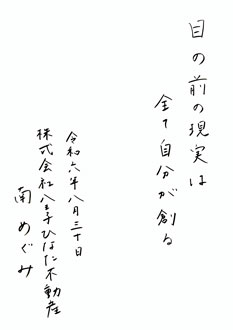 目の前の現実は
全て自分が創る
令和六年八月三十日
株式会社八王子ひなた不動産
南 めぐみ